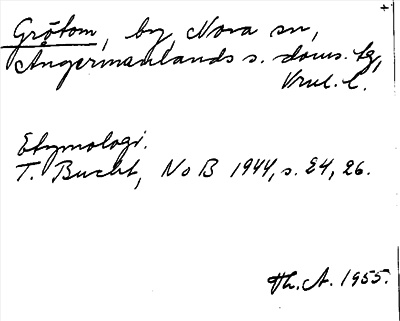 Grötom, by, Nora sn,
Ångermanlands s. doms. tg,
Vrnl. l.
Etymologi.
T. Bucht, NoB 1944, s. 24, 26.
Th. A. 1955.